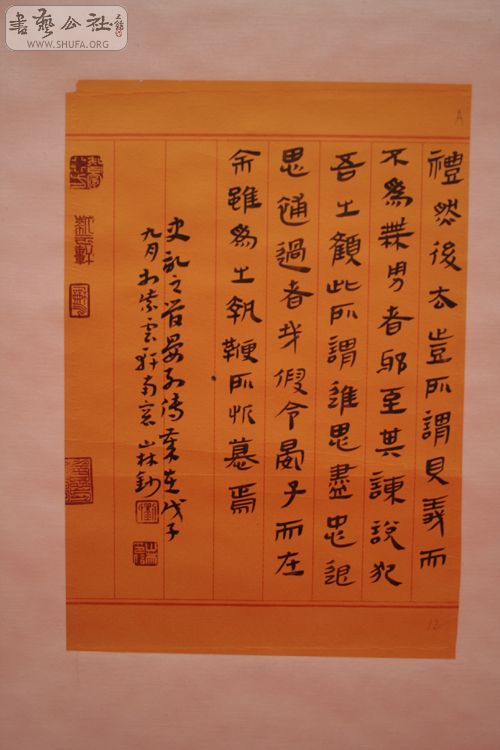 書藝公社
WWW.SHUFA.ORG
A
禮然後去豈所謂見義而
不為無勇者邪至其諫說犯
君之顏此所謂進思盡忠退
思補過者哉假令晏子而在
余雖為之執鞭所忻慕焉
史記之管晏列傳歲在戊子
九月於紫雲軒南窗山林鈔
12